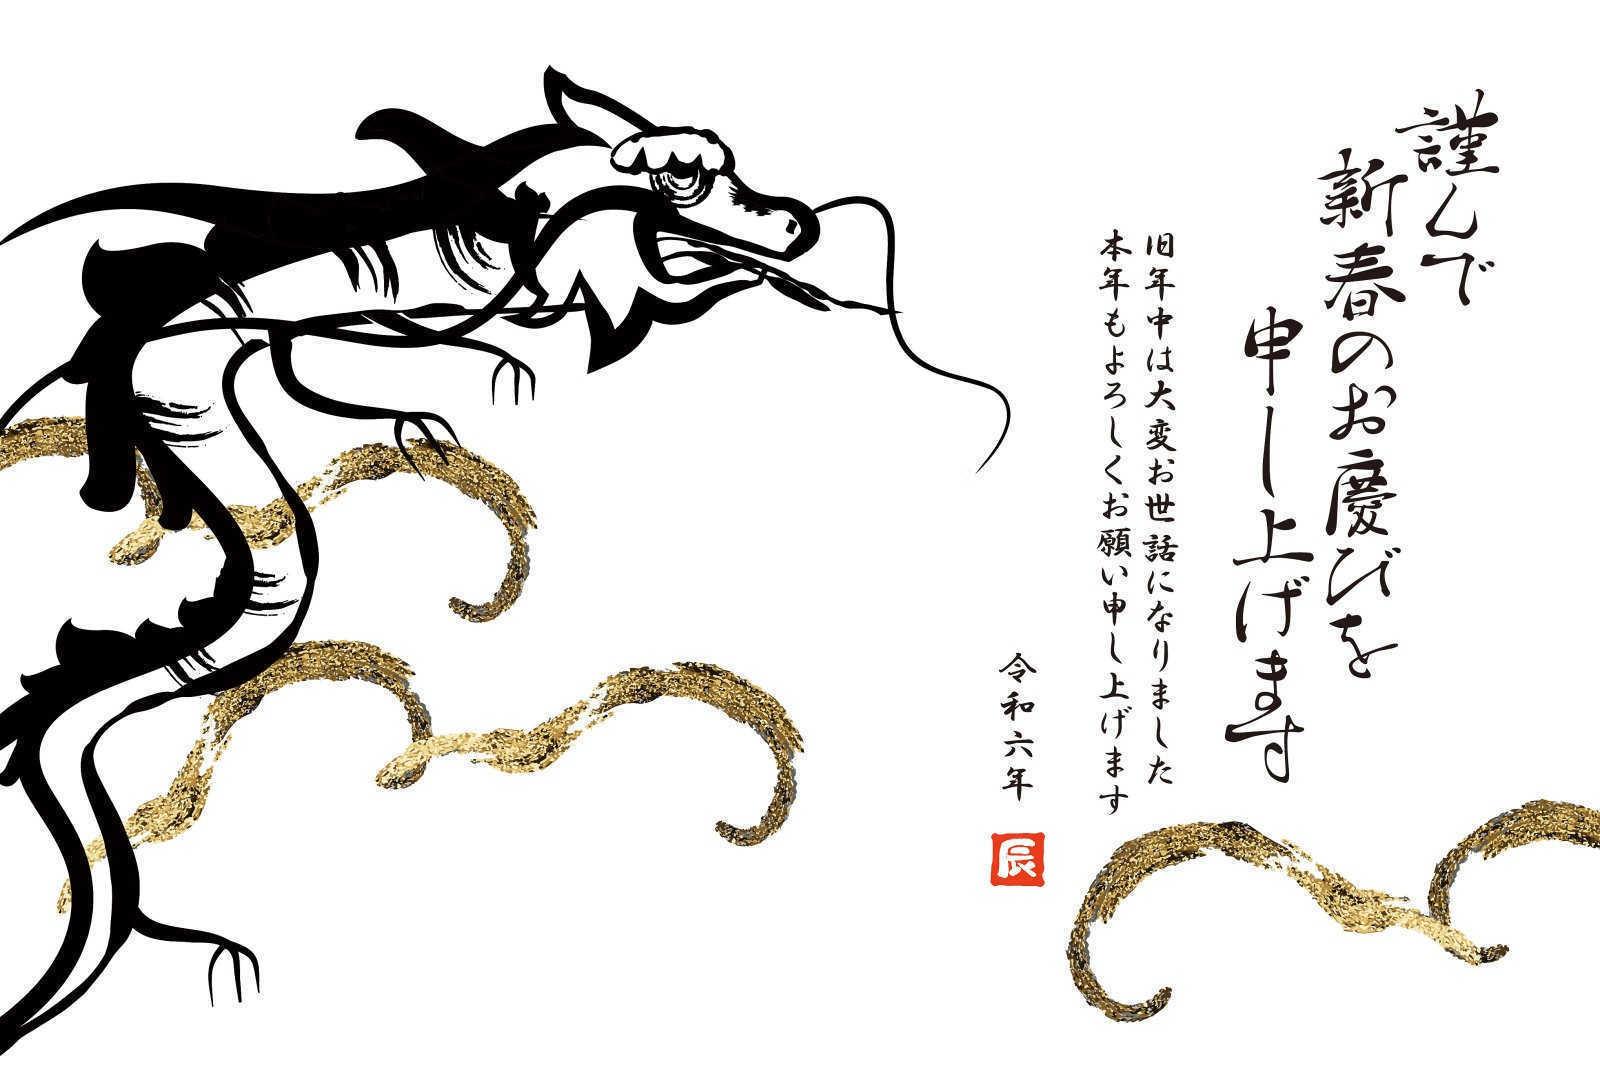 謹んで
新春のお慶びを
申し上げます
旧年中は大変お世話になりました
本年もよろしくお願い申し上げます
令和六年
辰